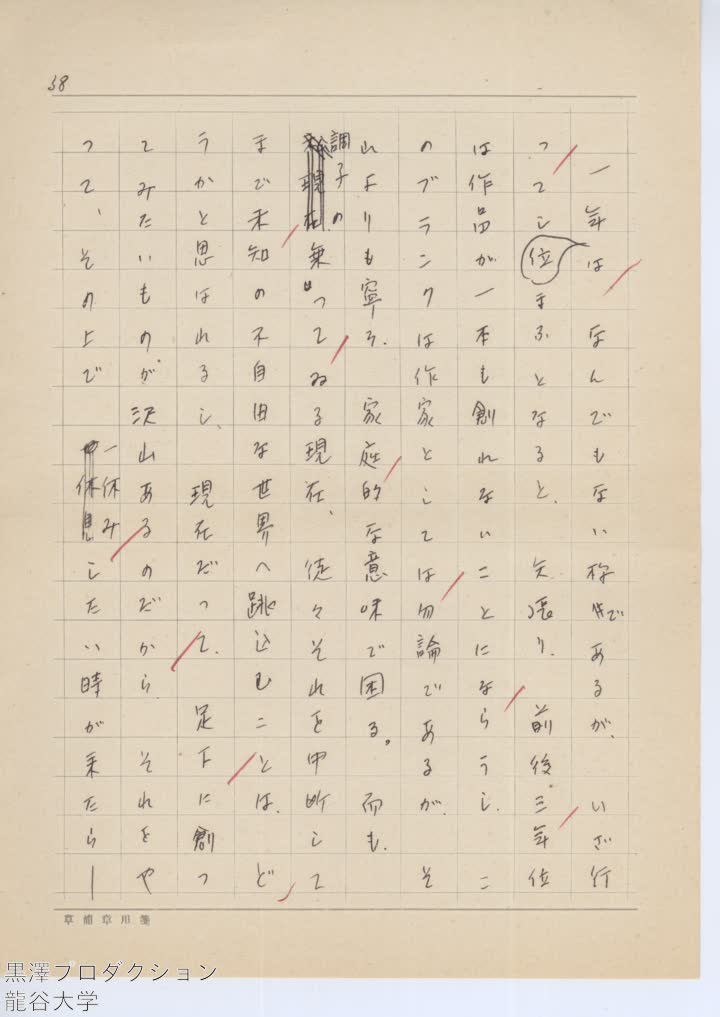 38
一年は なんでもない様であるが、いざ行
つてし位まふとなると、矢張り、前後三年位
は作品が一本も創れないことにならうし、こ
のブランクは作家としては勿論であるが、そ
れよりも寧ろ、家庭的な意味で困る。而も、
調子の乗つてゐる現在、徒々それを中断して
まで未知の不自由な世界へ跳込むことは、ど
うかと思はれるし、現在だつて、足下に創つ
てみたいものが沢山あるのだから、それをや
つて、その上で一休みしたい時が来たらー
草浦草川箋
黒澤プロダクション
龍谷大学